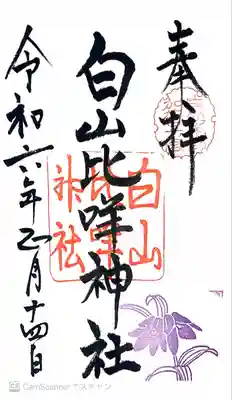 奉拝
白山比咩神社
令和六年正月十四日
白山
比咩
神社
CamScanner でスキャン